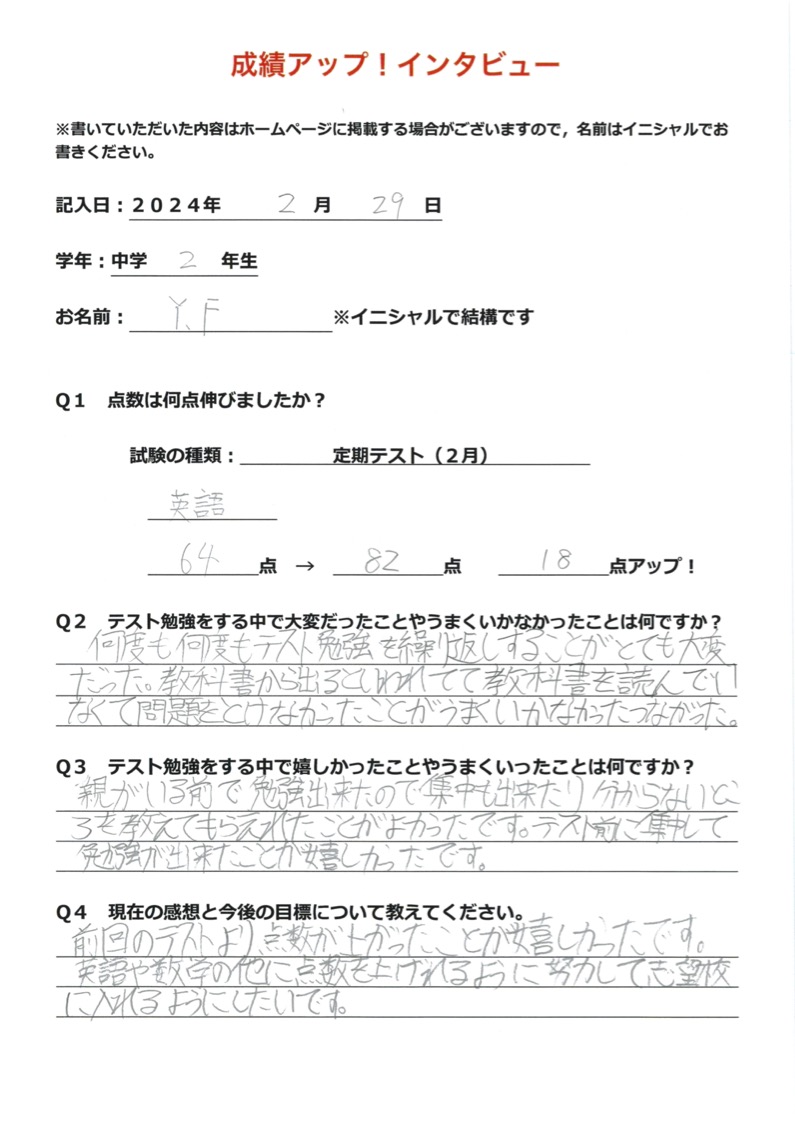 成績アップ！インタビュー
※書いていただいた内容はホームページに掲載する場合がございますので，名前はイニシャルでお
書きください。
記入日：２０２４年 2 月 29 日
学年：中学 2 年生
お名前： Y.F ※イニシャルで結構です
Ｑ１ 点数は何点伸びましたか？
試験の種類： 定期テスト（２月）
英語
64 点 → 82 点 18 点アップ！
Ｑ２ テスト勉強をする中で大変だったことやうまくいかなかったことは何ですか？
何度も何度もテスト勉強を繰り返しすることがとても大変
だった。教科書から出るといわれてて教科書を読んでい
なくて問題をとけなかったことがうまくいかなかったつながった。
Ｑ３ テスト勉強をする中で嬉しかったことやうまくいったことは何ですか？
親がいる前で勉強出来たので集中も出来たり分からないとこ
ろを教えてもらえれたことがよかったです。テスト前に集中して
勉強が出来たことが嬉しかったです。
Ｑ４ 現在の感想と今後の目標について教えてください。
前回のテストより点数が上がったことが嬉しかったです。
英語や数学の他に点数を上げれるように努力して志望校
に入れるようにしたいです。